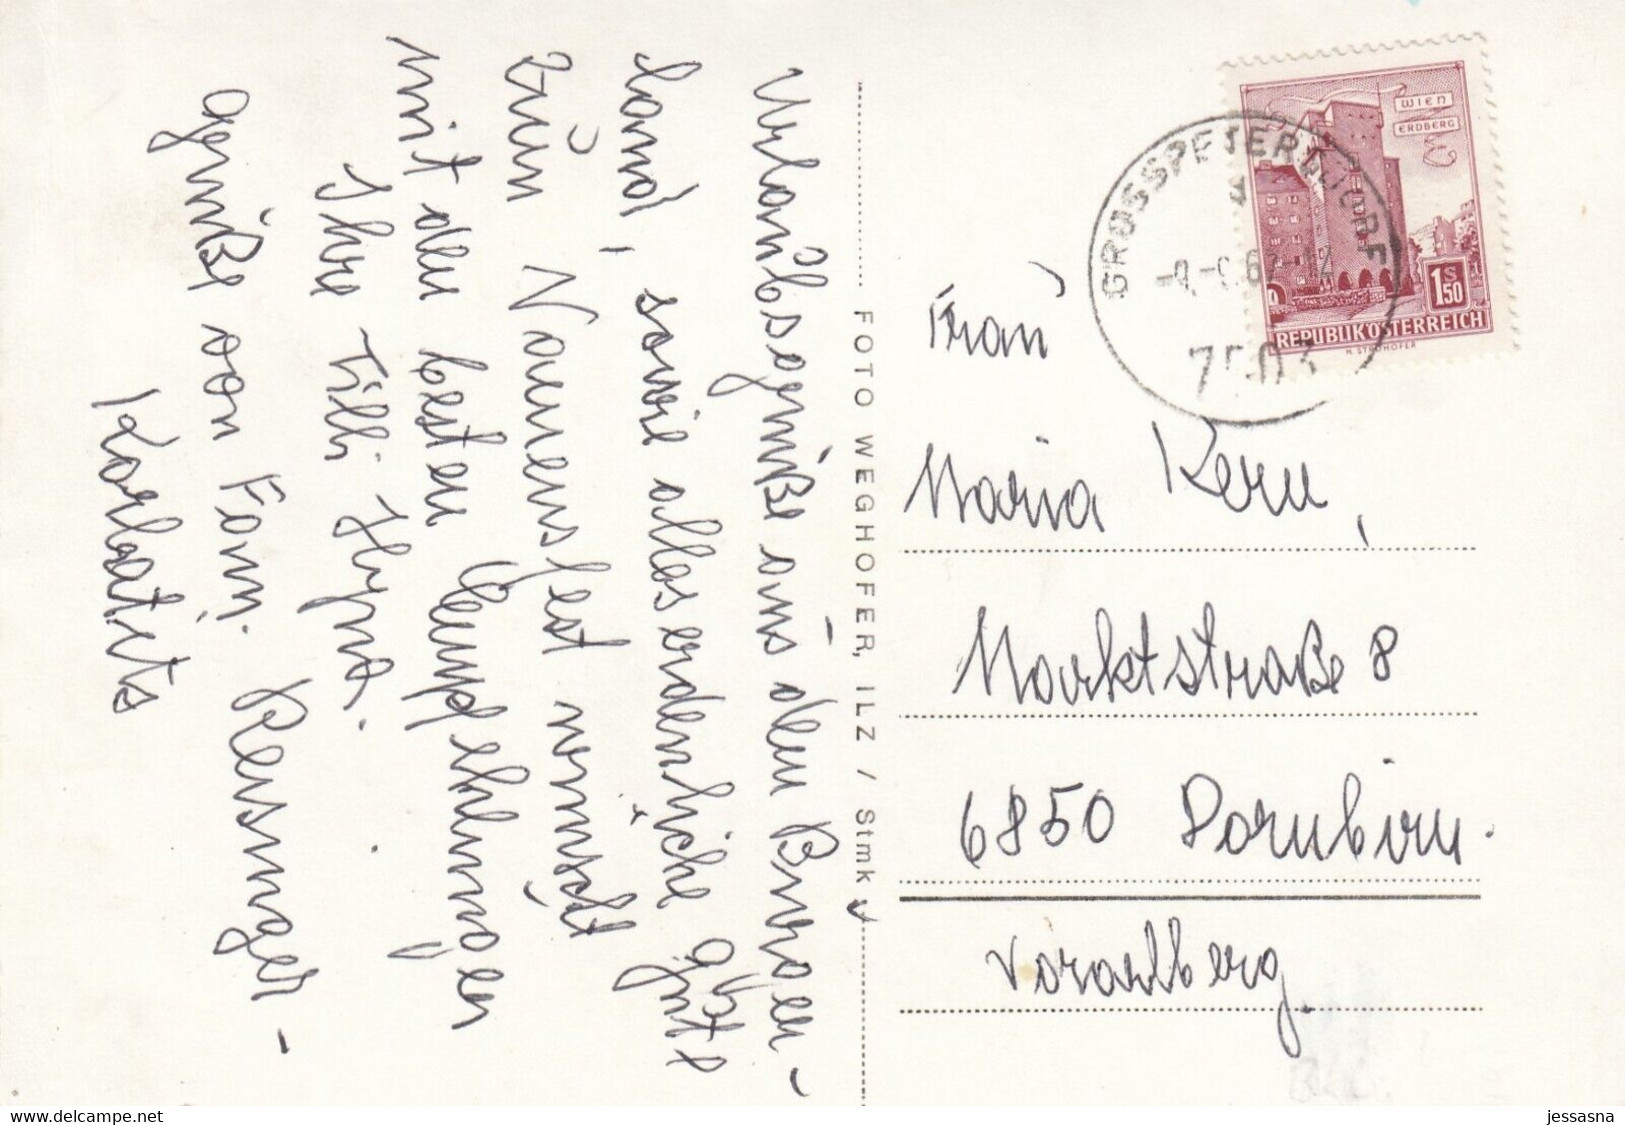 Urlaubsgrüße aus dem Burgen-
land, sowie alles erdenkliche gute
zum Namensfest wünscht
mit den besten Empfehlungen
Ihre Tilli
agrüße von Fam. Reisinger -
Karlsaits
FOTO WEGHOFER, ILZ / Stmk
WIEN
ERDBERG
1S50
REPUBLIK ÖSTERREICH
H. STROHOFER
GROSSPETERSDORF
7503
Frau
Maria Kern,
Marktstraße 8
6850 Dornbirn.
Vorarlberg.
www.delcampe.net
jessasna